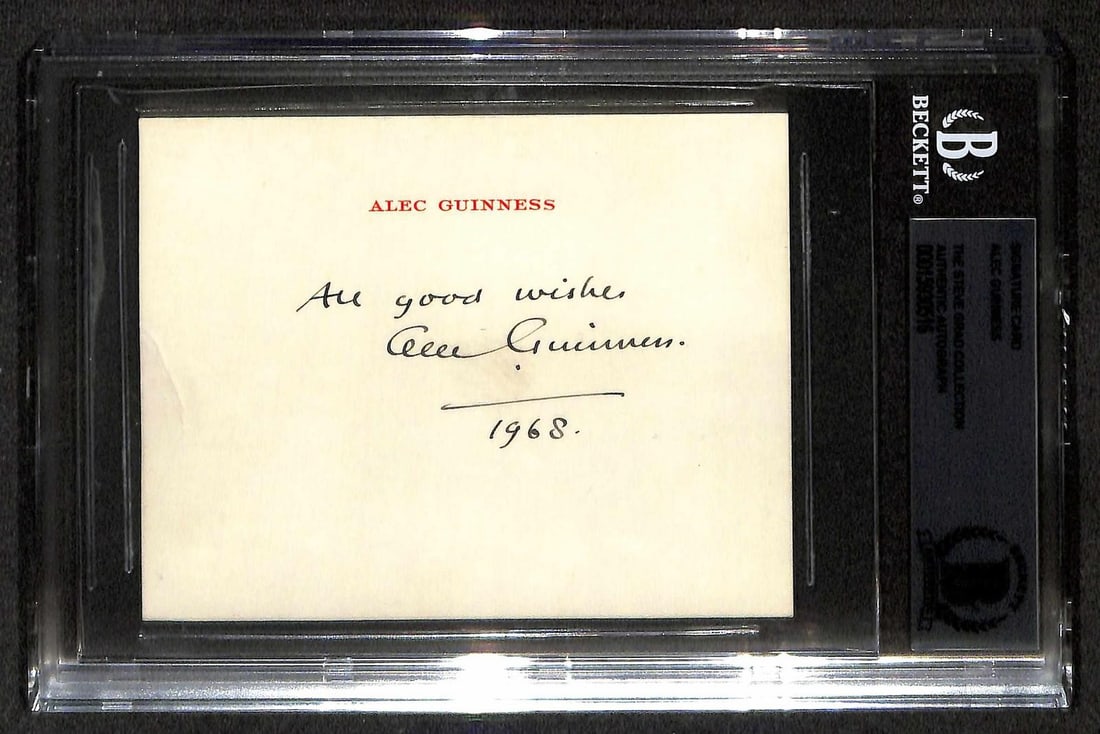 ALEC GUINNESS
All good wishes
Alec Guinness.
1968.
BECKETT®
SIGNATURE CARD
ALEC GUINNESS
THE STEVE GRAD COLLECTION
AUTHENTIC AUTOGRAPH
B